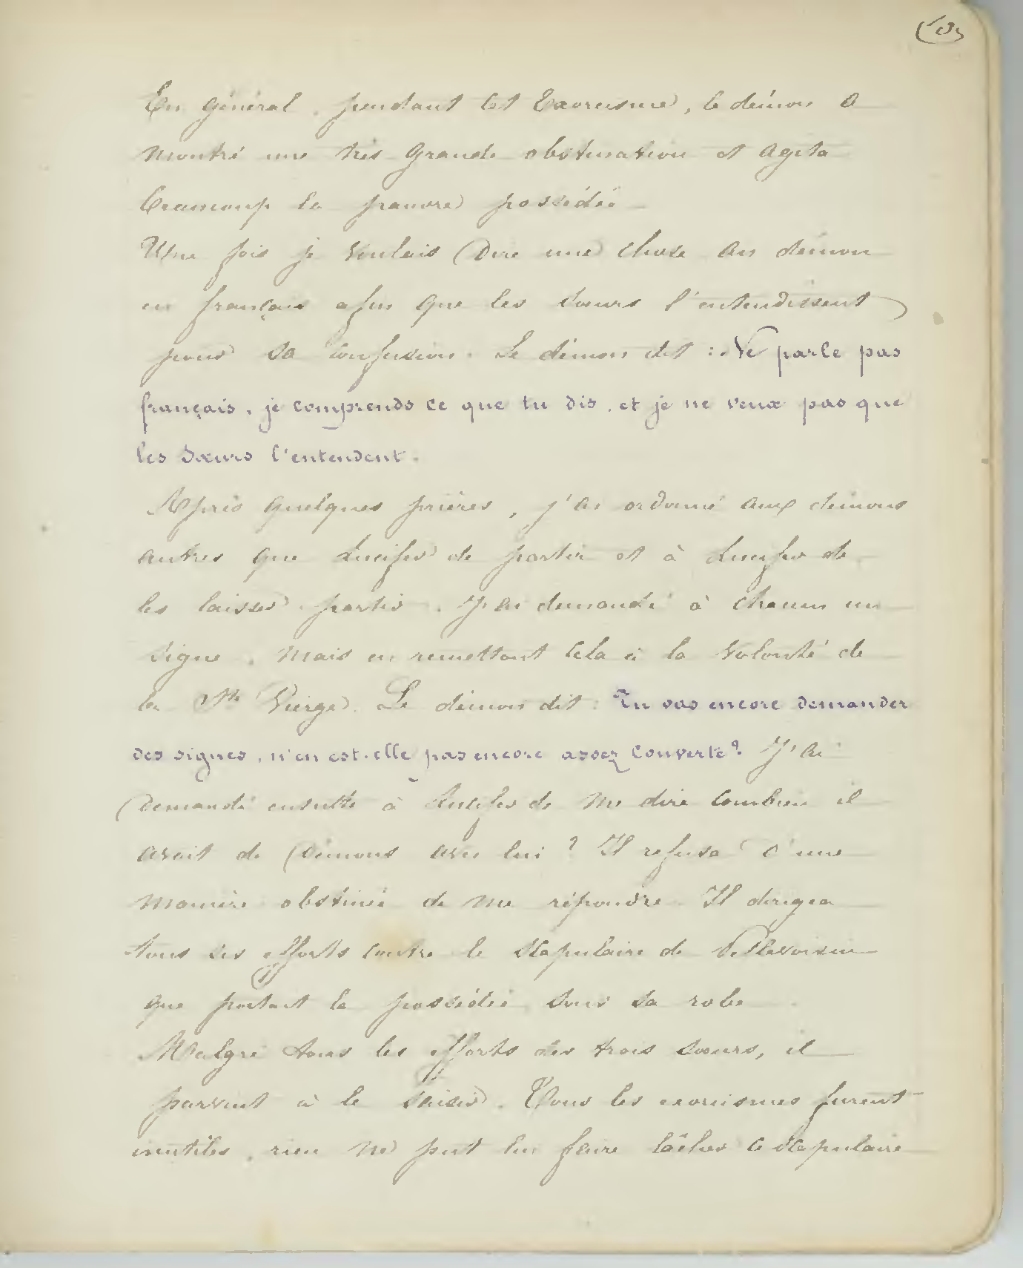 En général, pendant cet Exorcisme, le démon a
montré une très grande obstination et agita
beaucoup la pauvre possédée
Une fois je voulais dire une chose au démon
en français afin que les sœurs l'entendissent
pour sa confusion. Le démon dit : Ne parle pas
français, je comprends ce que tu dis, et je ne veux pas que
les Sœurs l'entendent.
Après quelques prières, j'ai ordonné aux démons
autres que Lucifer de partir et à Lucifer de
les laisser partir. J'ai demandé à chacun un
signe, mais en remettant cela à la volonté de
la Ste Vierge. Le démon dit : Tu vas encore demander
des signes, n'en est-elle pas encore assez couverte? J'ai
demandé ensuite à Lucifer de me dire combien il
avait de démons avec lui? Il refusa d'une
manière obstinée de me répondre. Il dirigea
tous ses efforts contre le scapulaire de Pellevoisin
que portait la possédée sous sa robe.
Malgré tous les efforts des trois sœurs, il
parvint à le saisir. Tous les exorcismes furent
inutiles, rien ne put lui faire lâcher le scapulaire